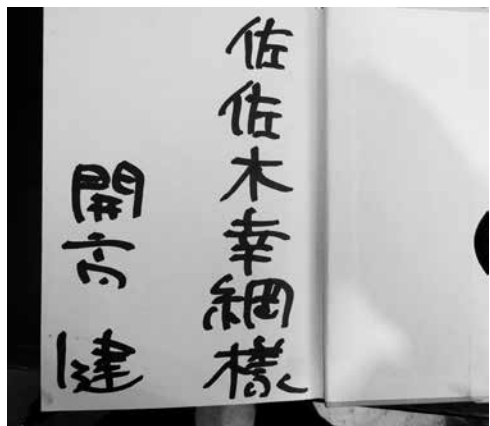 佐佐木幸綱様
開高健